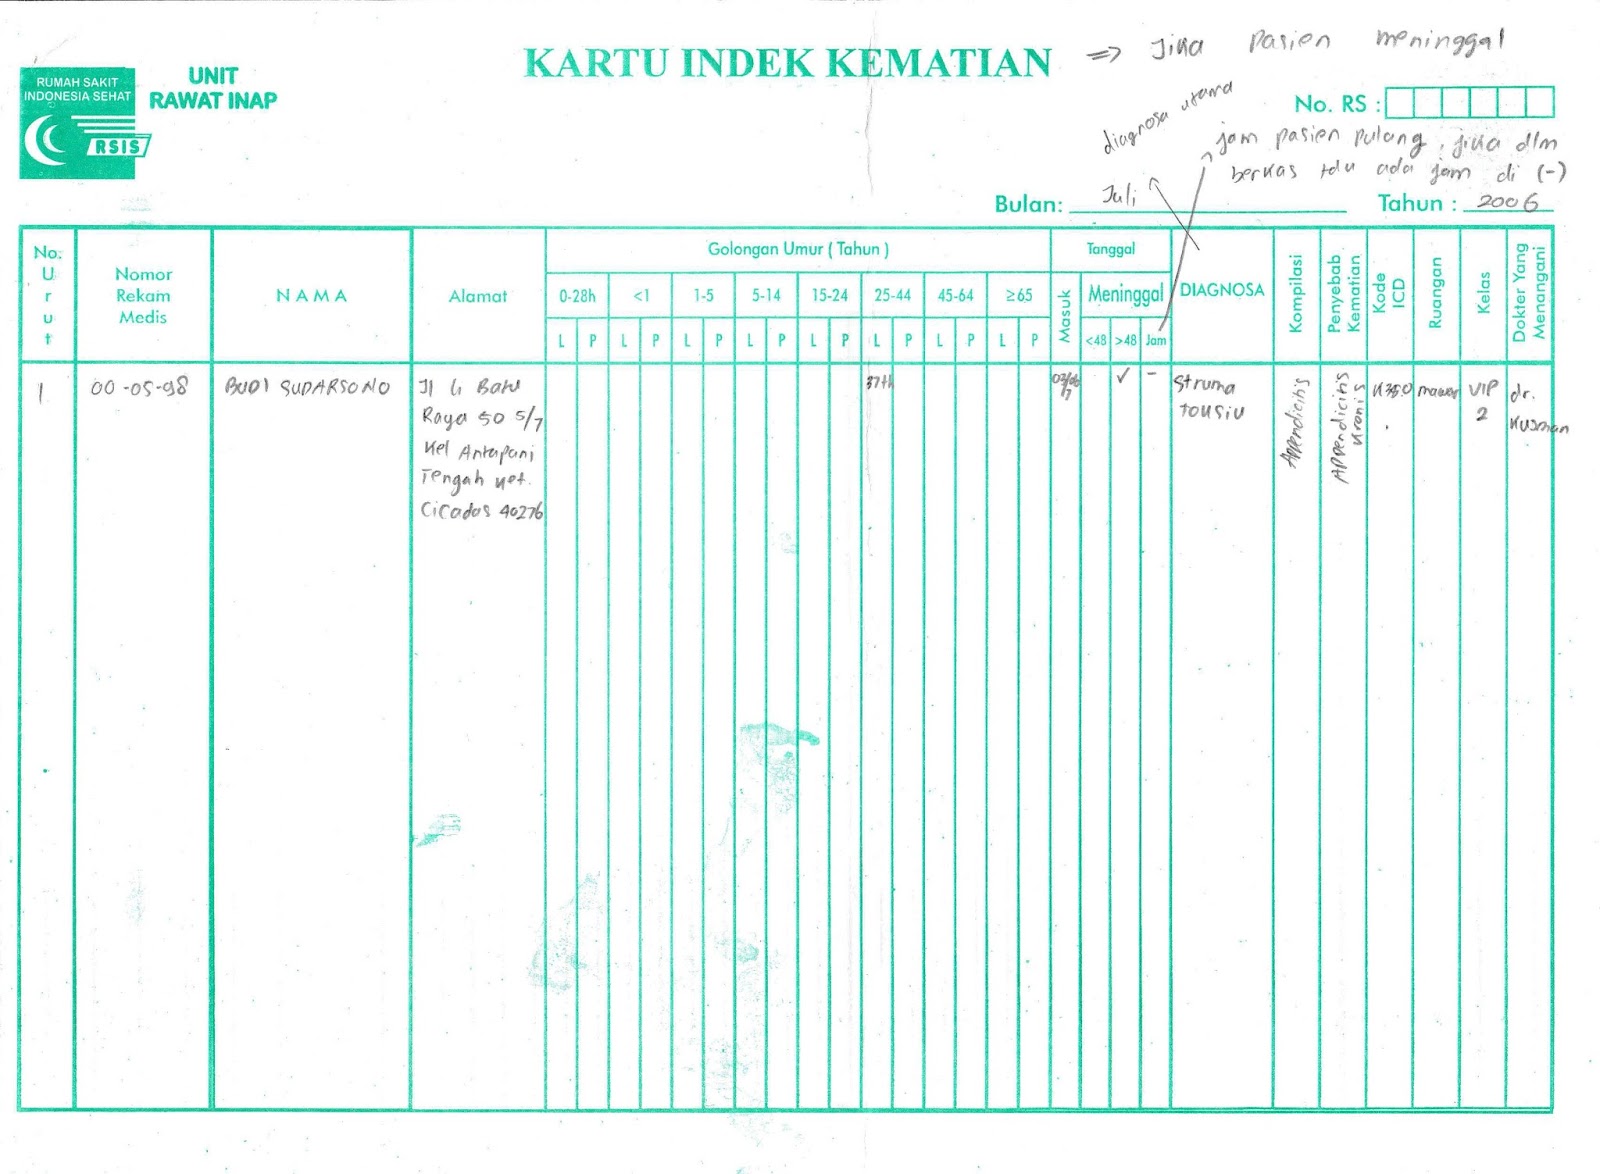 KARTU INDEK KEMATIAN ⇒ Jika pasien meninggal
RUMAH SAKIT
INDONESIA SEHAT
RSIS
UNIT
RAWAT INAP
diagnosa utama
No. RS :
jam pasien pulang, jika dlm
berkas tdk ada jam di (-)
Bulan: Juli Tahun : 2006
No. Urut
Nomor Rekam Medis
N A M A
Alamat
Golongan Umur ( Tahun )
0-28h <1 1-5 5-14 15-24 25-44 45-64 ≥65
L P L P L P L P L P L P L P L P
Tanggal
Masuk
Meninggal
<48 >48 Jam
DIAGNOSA
Kompilasi
Penyebab Kematian
Kode ICD
Ruangan
Kelas
Dokter Yang Menangani
1
00-05-98
BUDI SUDARSONO
Jl G Batu
Raya 50 5/7
Kel Antapani
Tengah Ket.
Cicadas 40276
37th
03/06
/7
✓ -
Struma
Appendicitis
Appendicitis
Kronis
mawar
VIP
2
dr.
Kusman